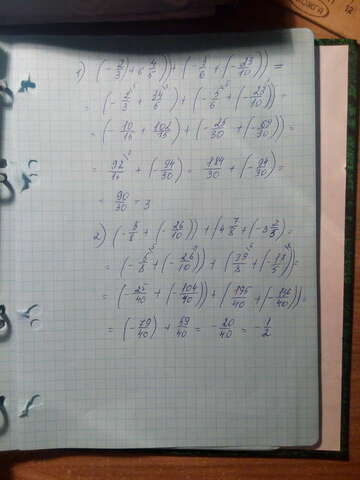 1) (-2/3) + 6 4/5)) + (-5/6 + (-23/10)) =
= (-2/3 + 34/5) + (-5/6 + (-23/10)) =
= (-10/15 + 102/15) + (-25/30 + (-69/30)) =
= 92/15 + (-94/30) = 184/30 + (-94/30) =
= 90/30 = 3
2) (-5/8 + (-26/10)) + (4 7/8 + (-3 2/5) =
= (-5/8 + (-26/10)) + (39/8 + (-18/5) =
= (-25/40 + (-104/40)) + (195/40 + (-136/40)) =
= (-79/40) + 59/40 = -20/40 = -1/2